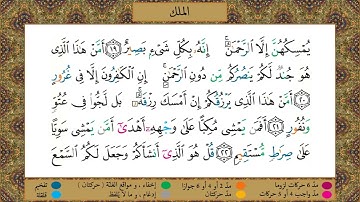 الملك
يُمْسِكُهُنَّ إِلَّا الرَّحْمَٰنُ ۚ إِنَّهُ بِكُلِّ شَيْءٍ بَصِيرٌ ﴿١٩﴾ أَمَّنْ هَٰذَا الَّذِي
هُوَ جُندٌ لَّكُمْ يَنصُرُكُم مِّن دُونِ الرَّحْمَٰنِ ۚ إِنِ الْكَافِرُونَ إِلَّا فِي غُرُورٍ
﴿٢٠﴾ أَمَّنْ هَٰذَا الَّذِي يَرْزُقُكُمْ إِنْ أَمْسَكَ رِزْقَهُ ۚ بَل لَّجُّوا فِي عُتُوٍّ
وَنُفُورٍ ﴿٢١﴾ أَفَمَن يَمْشِي مُكِبًّا عَلَىٰ وَجْهِهِ أَهْدَىٰ أَمَّن يَمْشِي سَوِيًّا
عَلَىٰ صِرَاطٍ مُّسْتَقِيمٍ ﴿٢٢﴾ قُلْ هُوَ الَّذِي أَنشَأَكُمْ وَجَعَلَ لَكُمُ السَّمْعَ
مد ٦ حركات لزوما مد ٢ أو ٤ أو ٦ جوازا إخفاء ، و مواقع الغنة ( حركتان ) تفخيم
مد واجب ٤ أو ٥ حركات مد حركتان إدغام ، و ما لا يلفظ قلقلة